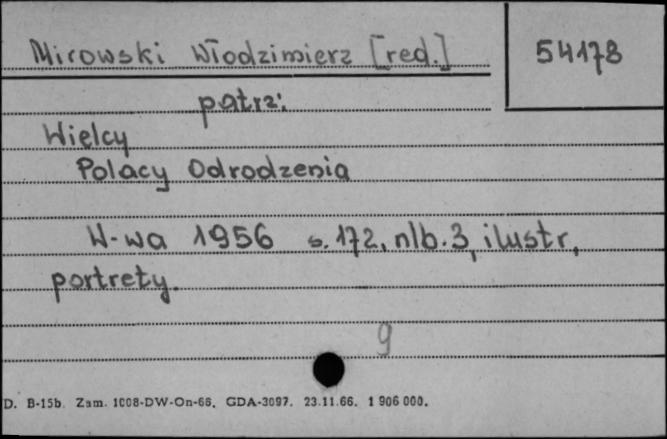 Mirowski Włodzimierz [red.]
54178
patrz:
Wielcy
Polacy Odrodzenia
W-wa 1956 s. 172, nlb. 3, ilustr,
portrety.
9
D. B-15b. Zam. 1008-DW-On-66. GDA-3097. 23.11.66. 1 906 000.